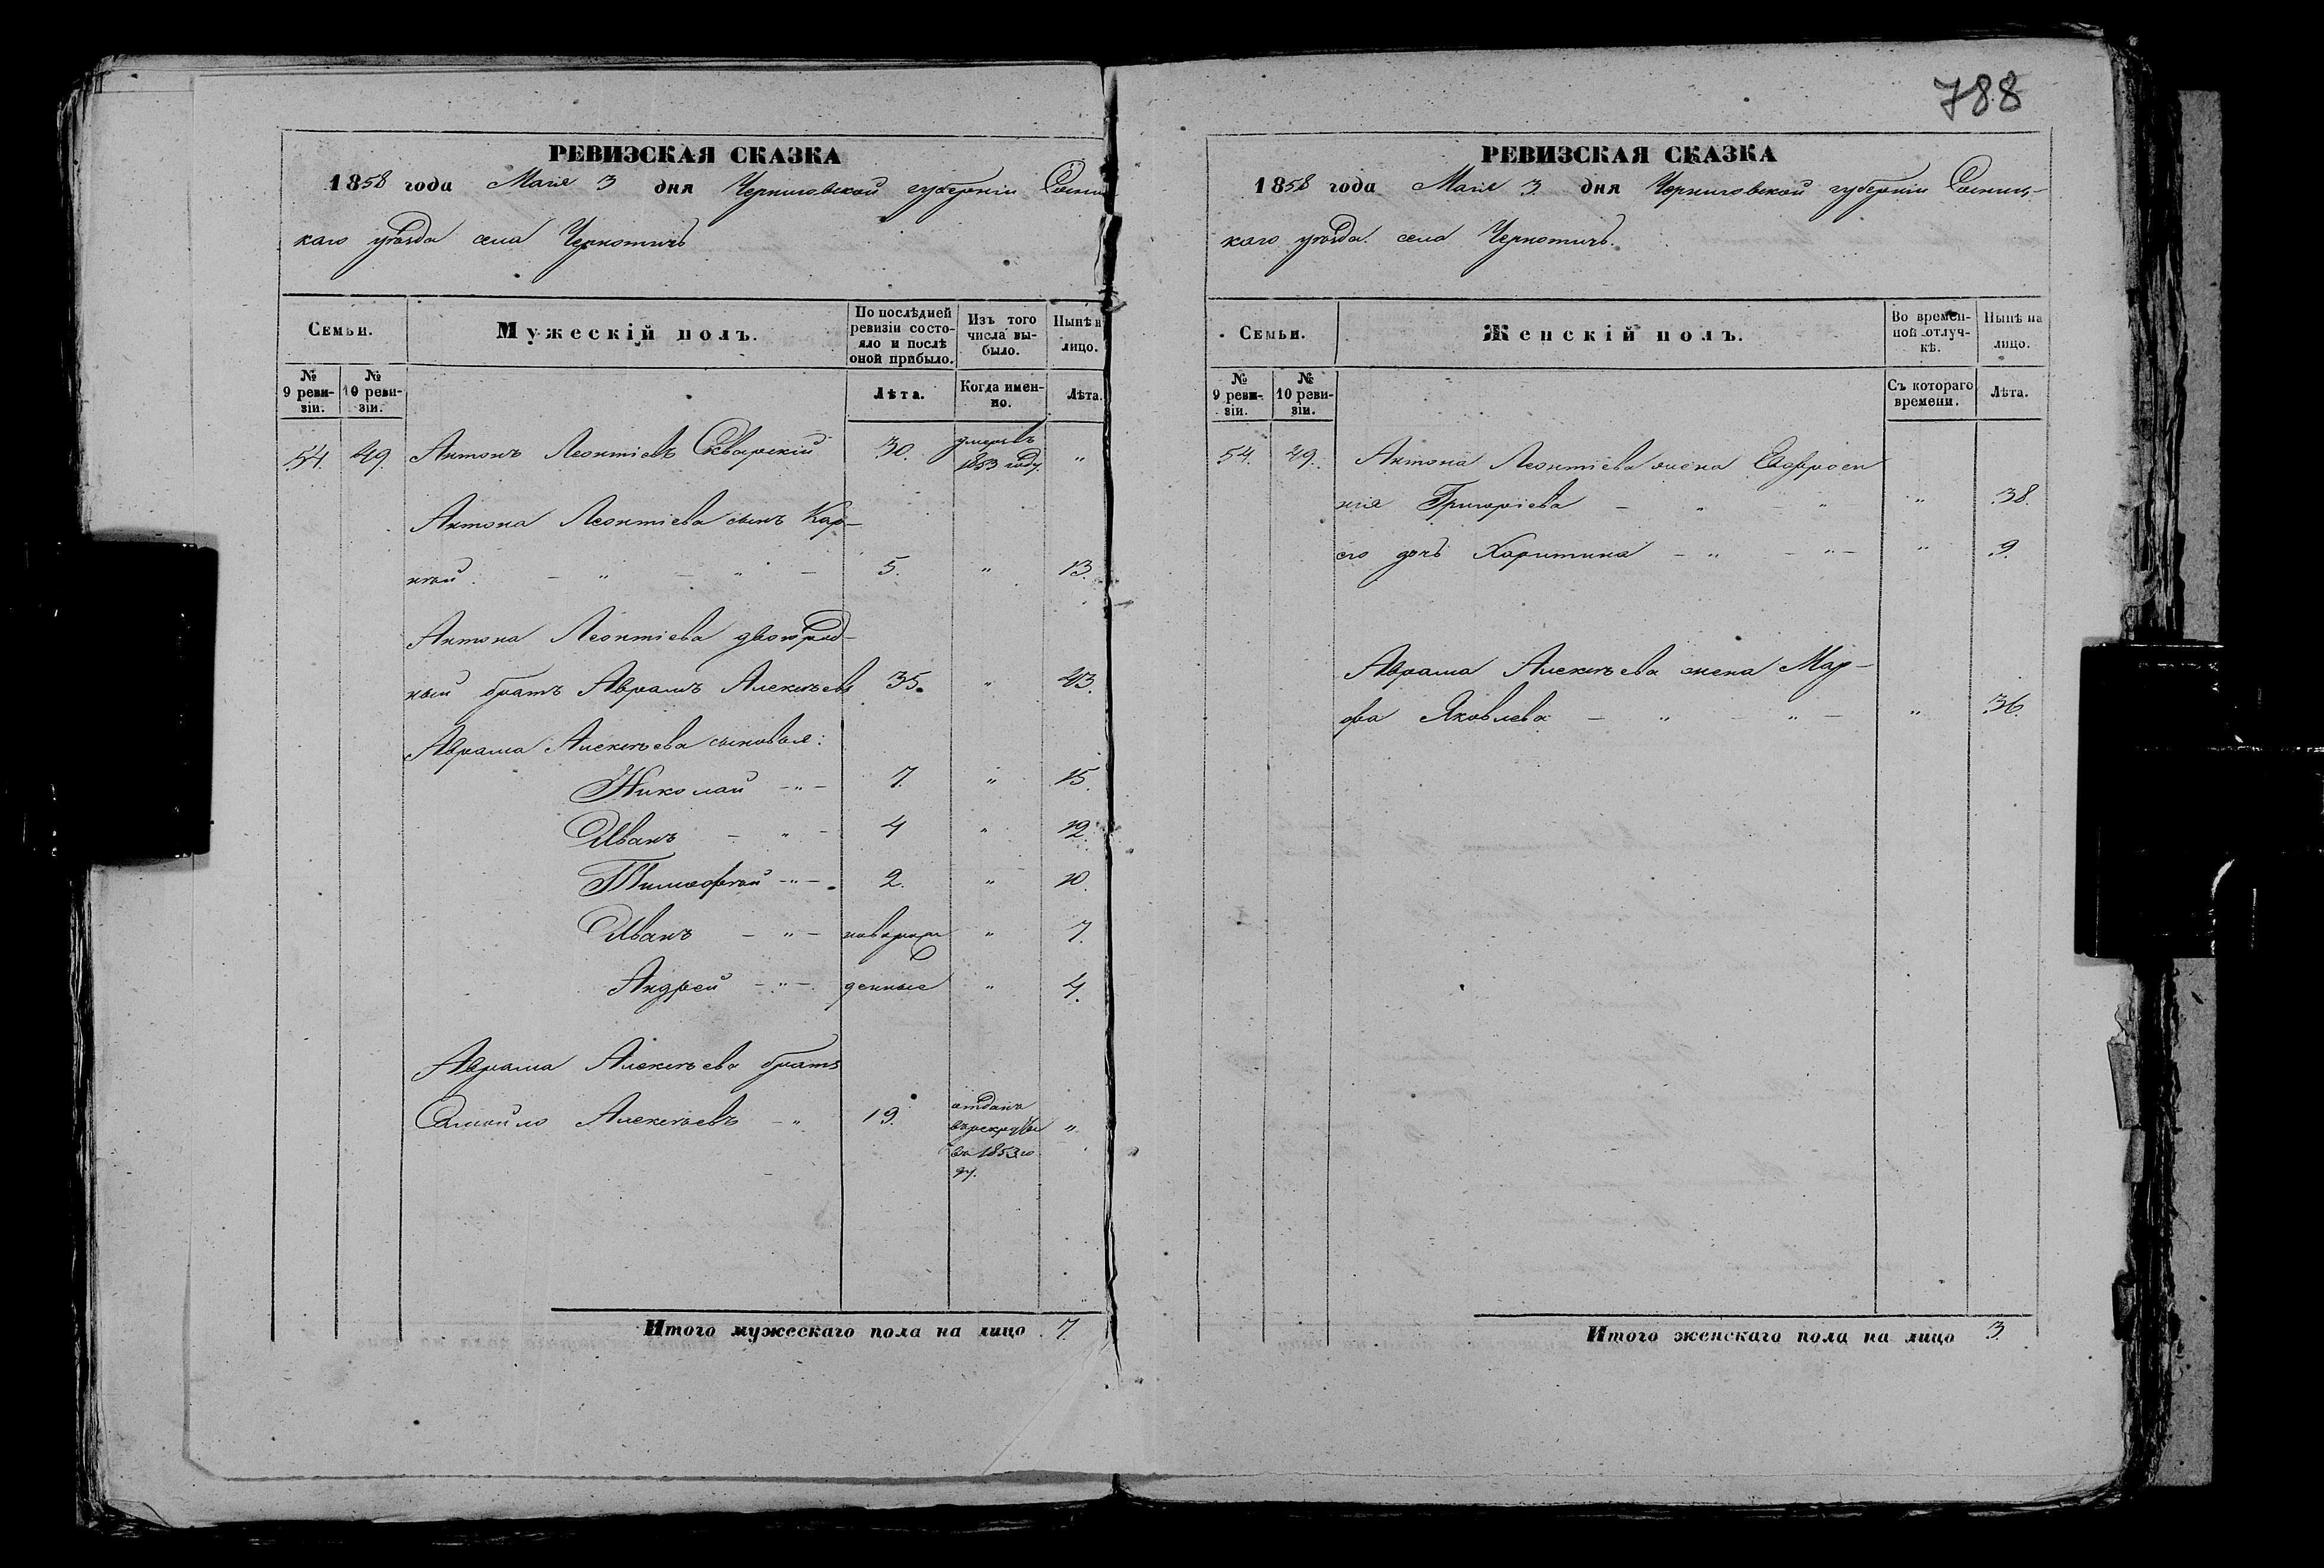 788
РЕВИЗСКАЯ СКАЗКА
1858 года Маія 3 дня Черниговской губерніи Сосниц
каго уѣзда села Чернотичъ
Семьи.
Мужескій полъ.
По послѣдней ревизіи состояло и послѣ оной прибыло.
Изъ того числа выбыло.
Нынѣ н лицо.
№ 9 ревизіи.
№ 10 ревизіи.
Лѣта.
Когда именно.
Лѣта.
54. 49. Антонъ Леонтіевъ Скварскій 30. умеръ въ 1853 году "
Антона Леонтіева сынъ Кор-
нѣй. — " — " — 5. " 13.
Антона Леонтіева двоюрод-
ный братъ Аврамъ Алексѣевъ 35. " 43.
Аврама Алексѣева сыновья:
Николай — " — 7. " 15.
Иванъ — " — 4 " 12.
Тимофѣй — " — 2. " 10.
Иванъ — " — новорож " 7.
Андрей — " — денные " 4.
Аврама Алексѣева братъ
Самойло Алексѣевъ — " 19. отданъ въ рекруты въ 1853 го ду. "
Итого мужескаго пола на лицо 7.
РЕВИЗСКАЯ СКАЗКА
1858 года Маія 3 дня Черниговской губерніи Сосниц-
каго уѣзда села Чернотичъ.
Семьи.
Женскій полъ.
Во временной отлучкѣ.
Нынѣ на лицо.
№ 9 ревизіи.
№ 10 ревизіи.
Съ котораго времени.
Лѣта.
54. 49. Антона Леонтіева жена Евфроси
нія Григоріева — " — " " 38.
его дочь Харитина — " — " — " 9.
Аврама Алексѣева жена Мар-
фа Яковлева — " — " — " 36.
Итого женскаго пола на лицо 3